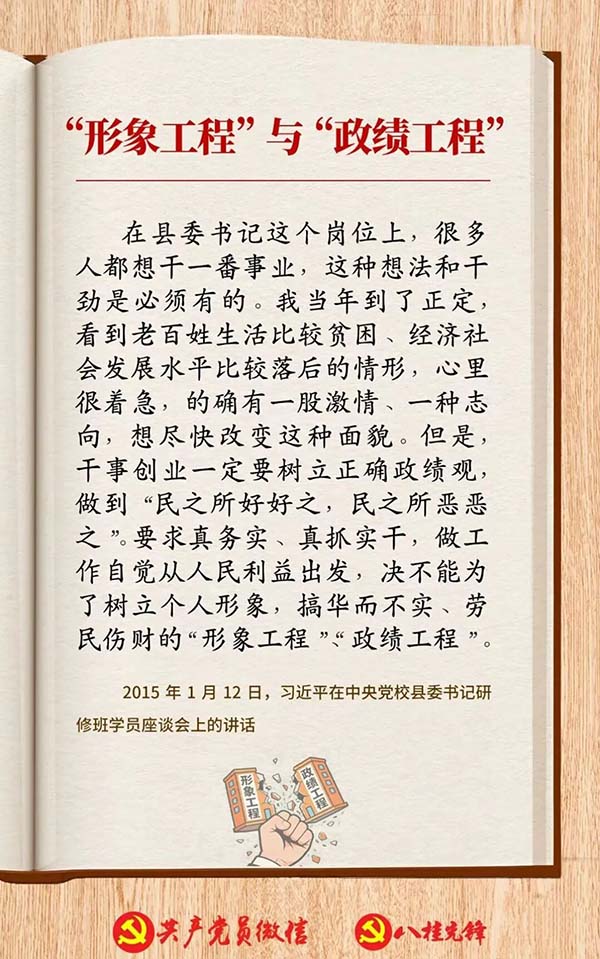 “形象工程”与“政绩工程”
在县委书记这个岗位上，很多
人都想干一番事业，这种想法和干
劲是必须有的。我当年到了正定，
看到老百姓生活比较贫困、经济社
会发展水平比较落后的情形，心里
很着急，的确有一股激情、一种志
向，想尽快改变这种面貌。但是，
干事创业一定要树立正确政绩观，
做到“民之所好好之，民之所恶恶
之”。要求真务实、真抓实干，做工
作自觉从人民利益出发，决不能为
了树立个人形象，搞华而不实、劳
民伤财的“形象工程”、“政绩工程”。
2015 年 1 月 12 日，习近平在中央党校县委书记研
修班学员座谈会上的讲话
形象工程
政绩工程
共产党员微信
八桂先锋